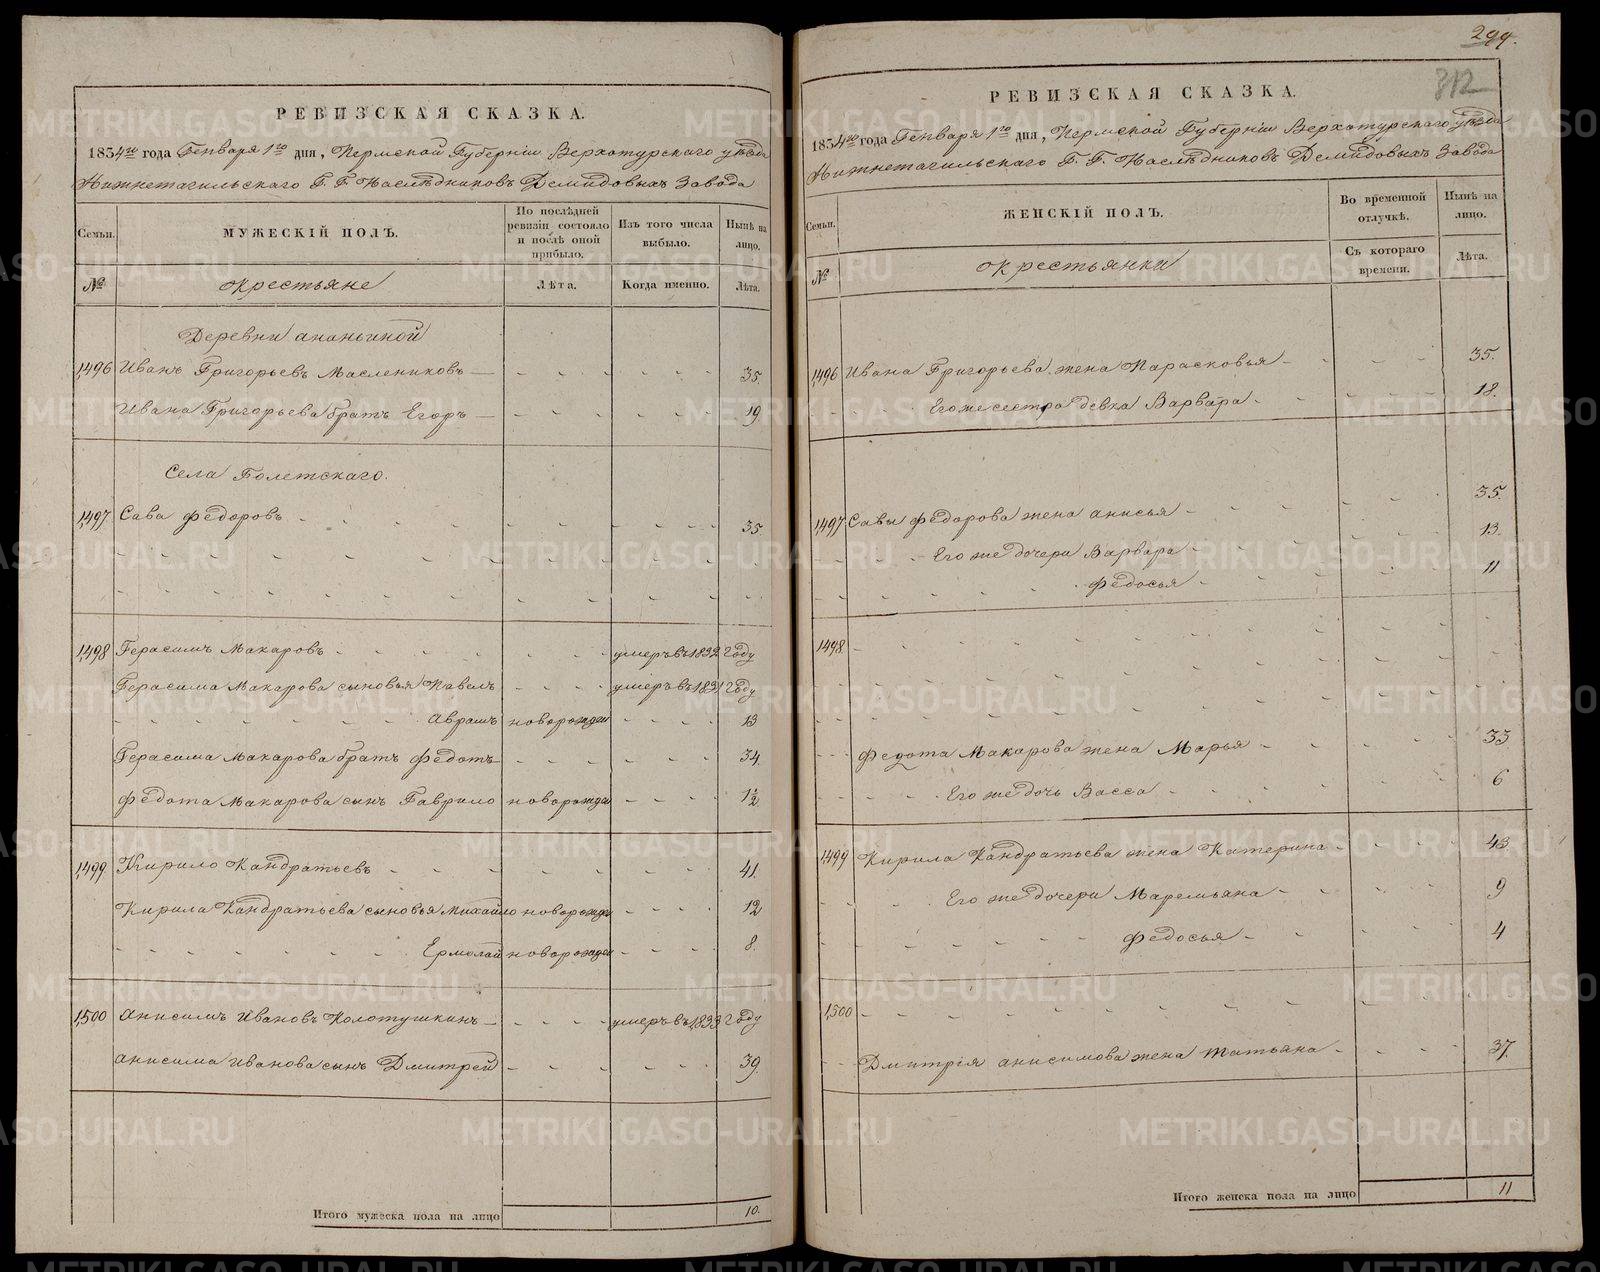 РЕВИЗСКАЯ СКАЗКА.
1834го года Генваря 1го дня, Пермской Губернiи Верхотурскаго уѣзда
Нижнетагильскаго Г. Г. Наслѣдниковъ Демидовыхъ Завода
Семьи.
МУЖЕСКIЙ ПОЛЪ.
По послѣдней ревизiи состояло и послѣ оной прибыло.
Изъ того числа выбыло.
Нынѣ на лицо.
№
окрестьяне
Лѣта.
Когда именно.
Лѣта.
Деревни ананьиной
1,496 Иванъ Григорьевъ Маслениковъ 35.
Ивана Григорьева братъ Егоръ 19.
Села Болетскаго.
1,497 Сава Федоровъ 35.
1,498 Герасимъ Макаровъ умеръ въ 1832 году
Герасима Макарова сыновья Павелъ умеръ въ 1831 году
Аврамъ новорожден 13
Герасима Макарова братъ Федотъ 34.
Федота Макарова сынъ Гаврило новорожден 1/2
1,499 Кирило Кандратьевъ 41.
Кирила Кандратьева сыновья Михайло новорожден 12
Ермолай новорожден 8.
1,500 Анисимъ Ивановъ Колотушкинъ умеръ въ 1,833 году
анисима Иванова сынъ Дмитрей 39.
Итого мужеска пола на лицо 10.
299.
312
РЕВИЗСКАЯ СКАЗКА.
1834го года Генваря 1го дня, Пермской Губернiи Верхотурскаго уѣзда
Нижнетагильскаго Г. Г. Наслѣдниковъ Демидовыхъ Завода
Семьи.
ЖЕНСКIЙ ПОЛЪ.
Во временной отлучкѣ.
Нынѣ на лицо.
№
окрестьянки
Съ котораго времени.
Лѣта.
1,496 Ивана Григорьева жена Парасковья 35.
Егоже сестра девка Варвара 18.
1,497 Савы Федорова жена анисья 35.
Его же дочери Варвара 13.
Федосья 11
1,498
Федота Макарова жена Марья 33
Его же дочь Васса 6
1,499 Кирила Кандратьева жена Катерина 43.
Его же дочери Маремьяна 9
Федосья 4
1,500
Дмитрiя анисимова жена татьяна 37.
Итого женска пола на лицо 11
METRIKI.GASO-URAL.RU